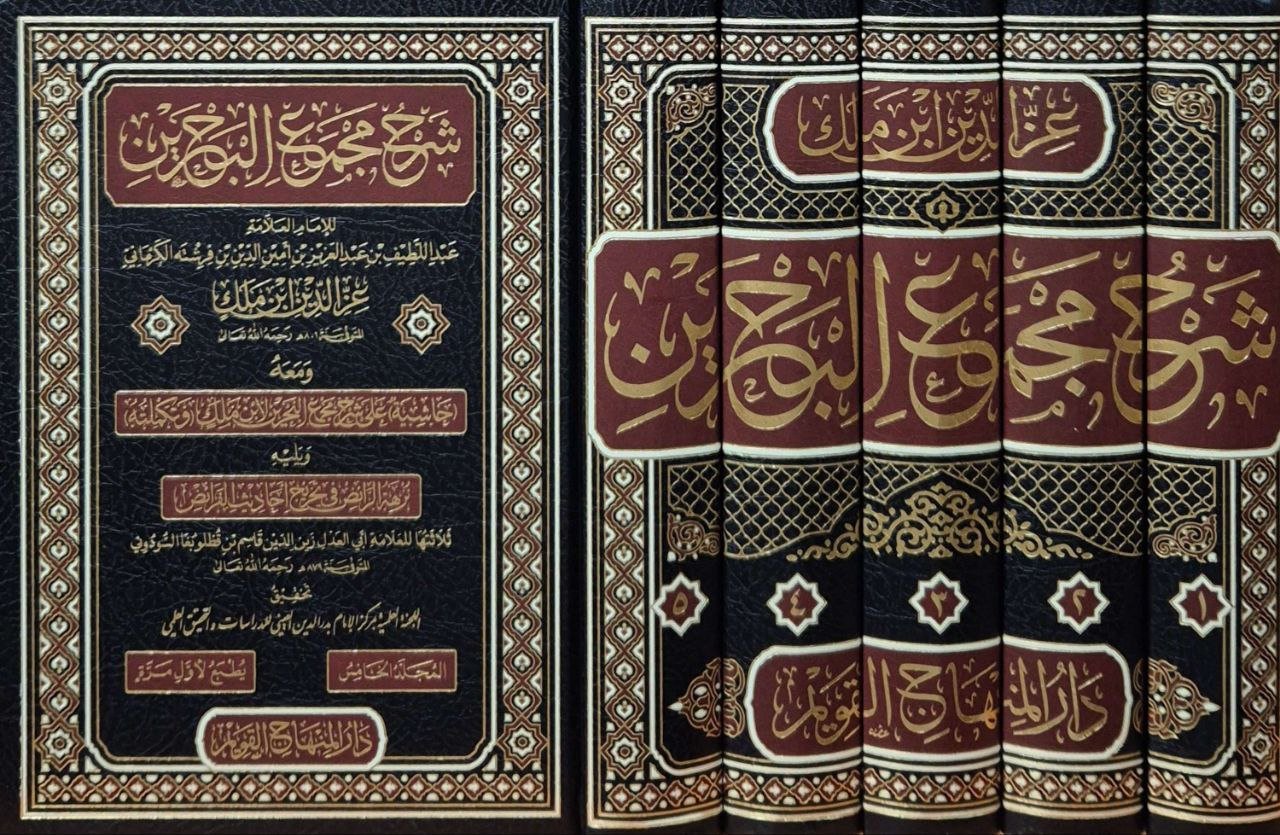 شرح مجمع البحرين
للإمام العلامة
عبد اللطيف بن عبد العزيز بن أمين الدين بن فرشته الكرماني
عز الدين ابن ملك
المتوفى سنة ٨٠١ھ رحمه الله تعالى
ومعه
حاشية على شرح مجمع البحرين لابن ملك (وتكملته)
ويليه
نزهة الرائض في تخريج أحاديث الفرائض
ثلاثتها للعلامة أبي العدل زين الدين قاسم بن قطلوبغا السودوني
المتوفى سنة ٨٧٩ھ رحمه الله تعالى
تحقيق
اللجنة العلمية بمركز الإمام بدر الدين العيني للدراسات والتحقيق العلمي
المجلد الخامس
يطبع لأول مرة
دار المنهاج القويم
عز الدين ابن ملك
شرح مجمع البحرين
١ ٢ ٣ ٤ ٥
دار المنهاج القويم